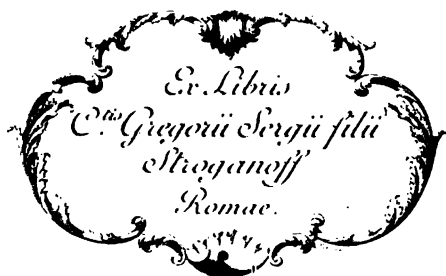 Ex Libris
C.tis Gregorii Sergii filii
Stroganoff
Romae.